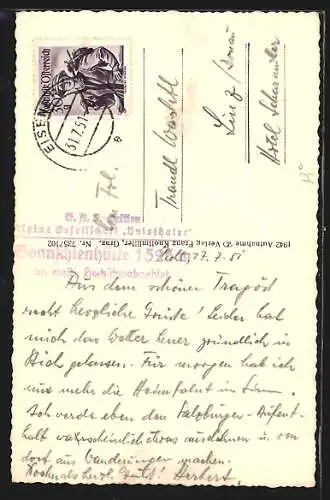 Republik Österreich
EISEN
31.7.51
e
Frl.
Traudl
Linz / Donau
Hotel Scharmüller
Alpine Gesellschaft „Voisthaler"
Sonnschienhütte 15
im steir. Hochschwabgebiet
1942 Aufnahme u. Verlag Franz Knollmüller, Graz. Nr. 7257/102
27.7.51
Aus dem schönen Tragöß
recht herzliche Grüße! Leider hat
mich das Wetter heuer gründlich in
Stich gelassen. Für morgen hab ich
nur mehr die Heimfahrt im Sinn.
Ich werde eben den Salzburger-Aufent-
halt wahrscheinlich etwas ausdehnen u. von
dort aus Wanderungen machen.
Nochmals herzl. Grüße! Herbert.